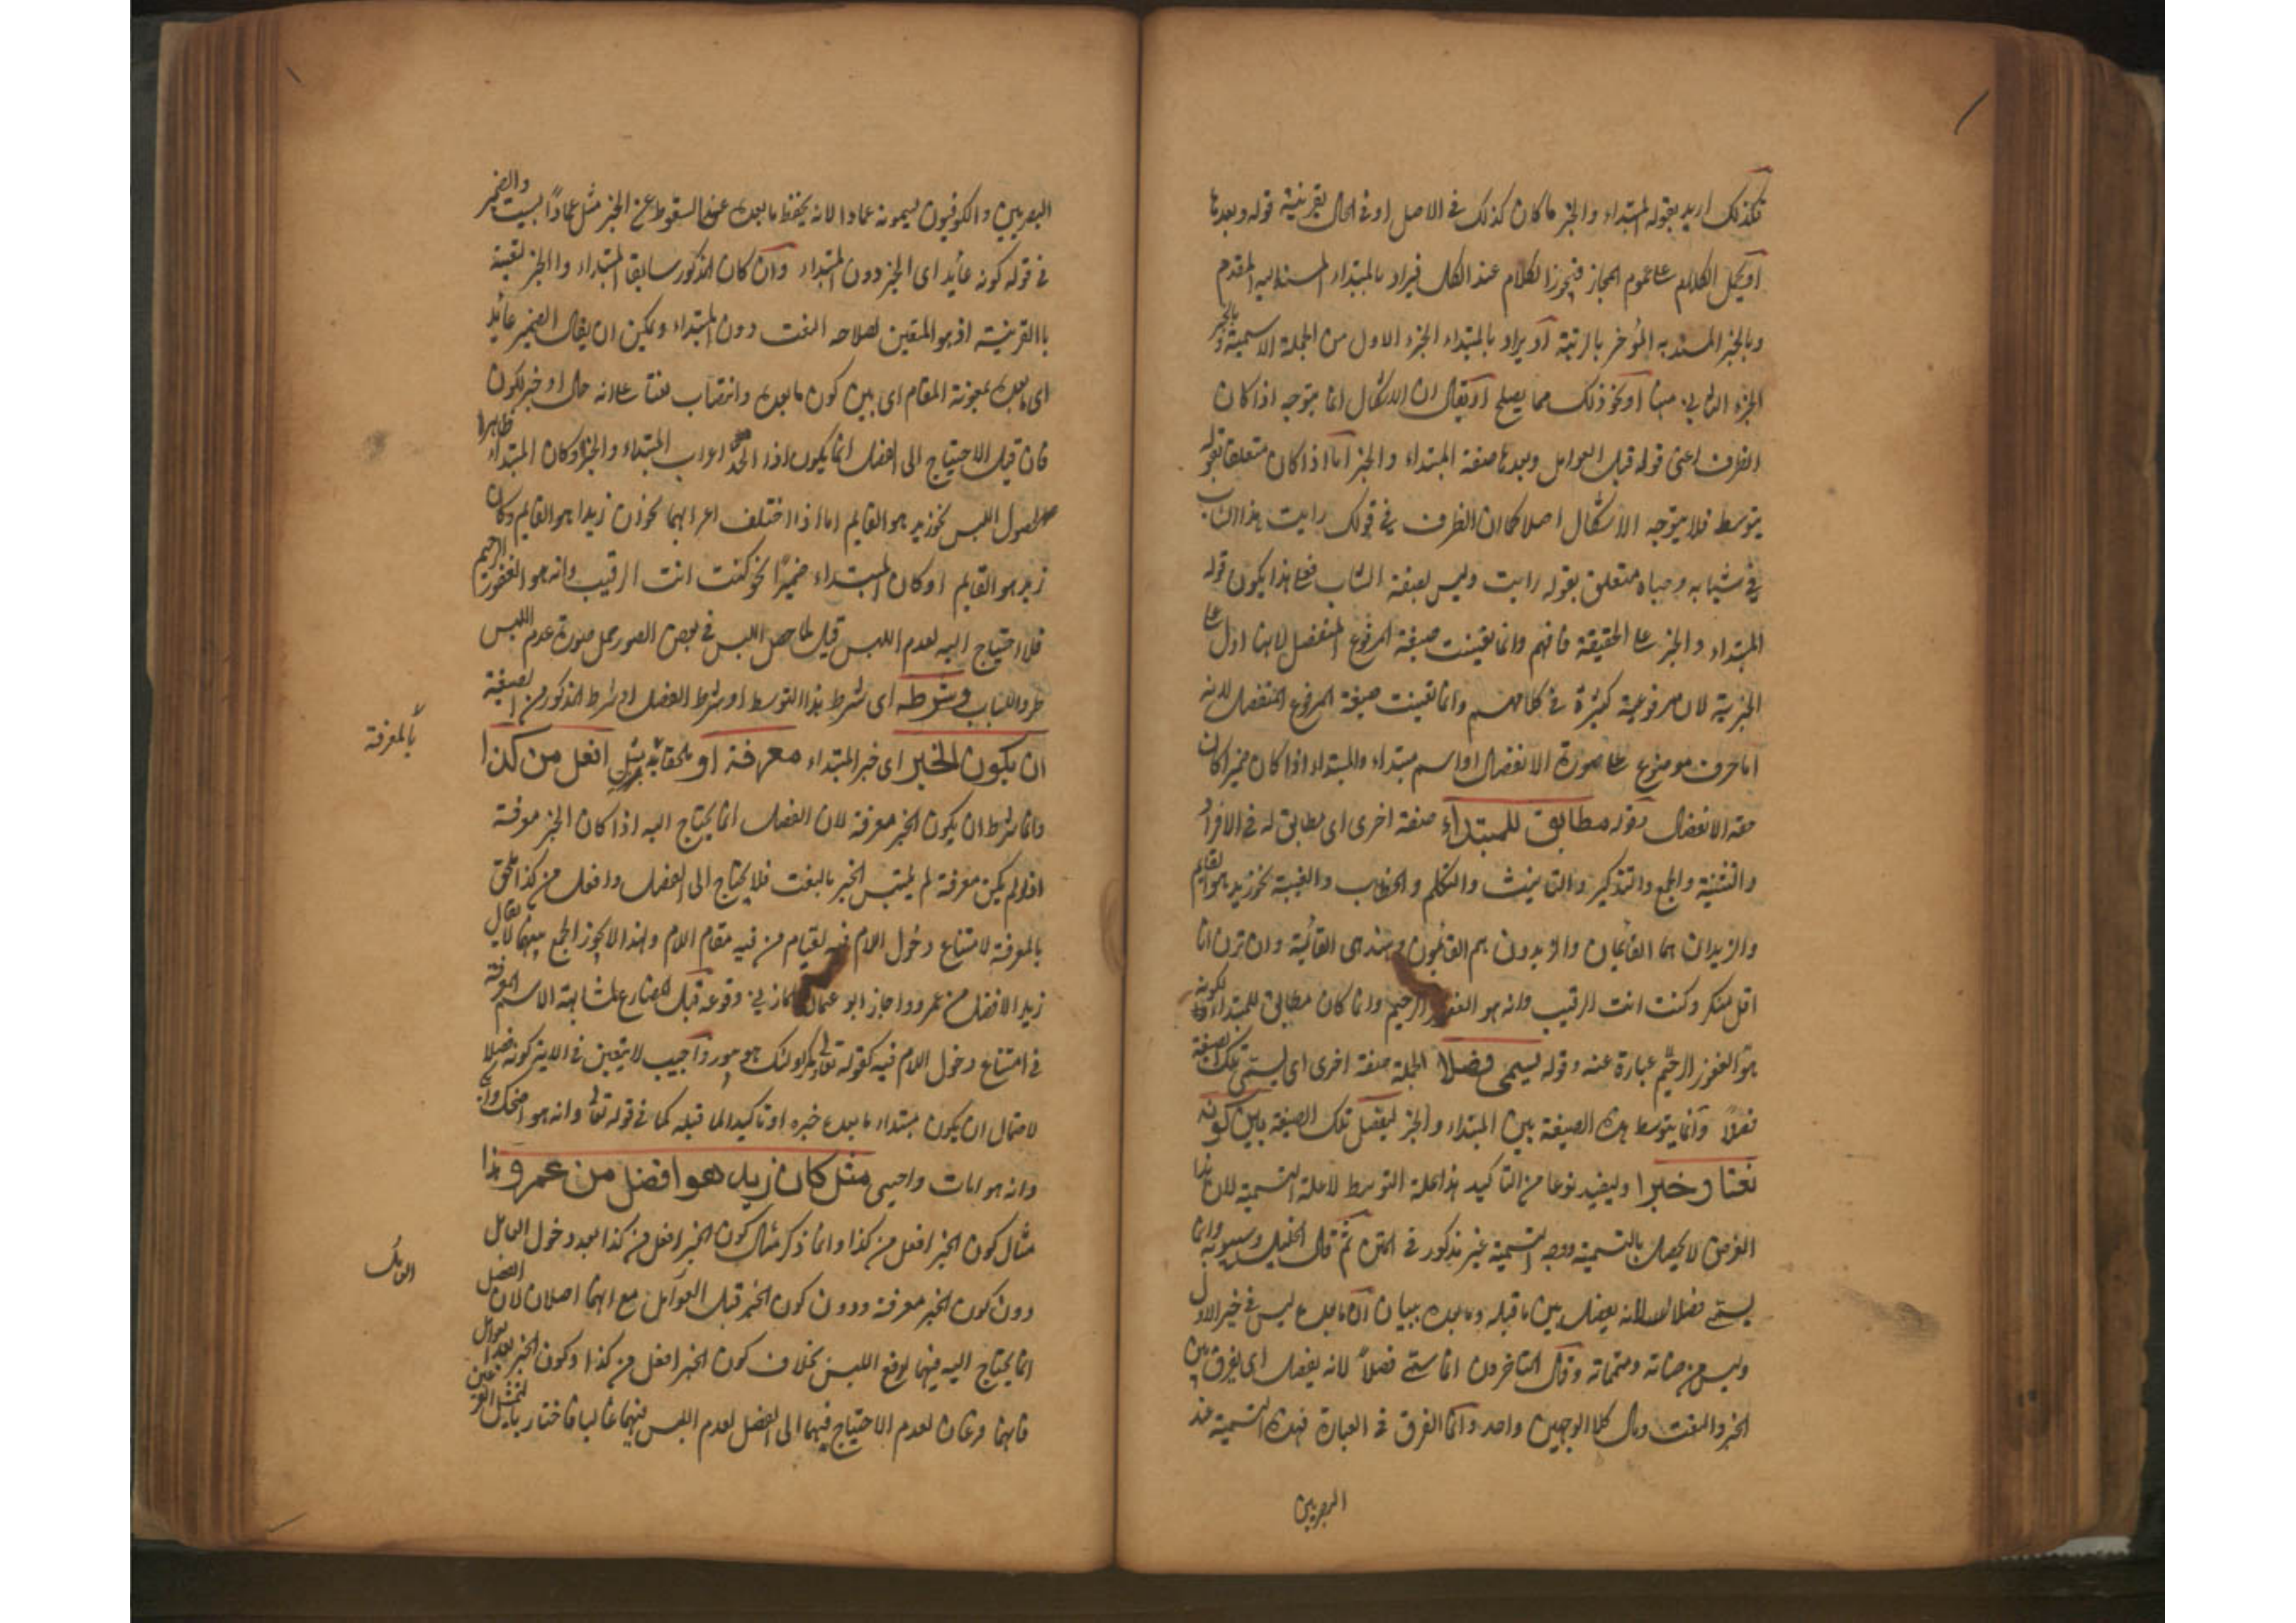 فكذلك اريد بقوله المبتداء والخبر ما كان كذلك فى الاصل او فى الحال بقرينة قوله وبعدها
او يحمل الكلام على عموم المجاز فيجوز الكلام عند الكل فيراد بالمبتداء المسند اليه المقدم
وبالخبر المسند به المؤخر بالرتبة او يراد بالمبتداء الجزء الاول من الجملة الاسمية وبالخبر
الجزء الثانى منها او نحو ذلك مما يصلح او يقال ان الاشكال انما يتوجه اذا كان
الظرف اعنى قوله قبل العوامل وبعدها صفة المبتداء والخبر اما اذا كان متعلقا بقوله
يتوسط فلا يتوجه الاشكال اصلا كما ان الظرف فى قولك رايت هذا الشاب
فى شبابه وصباه متعلق بقوله رايت وليس بصفة الشاب فعلى هذا يكون قوله
المبتداء والخبر على الحقيقة فافهم وانما تعينت صيغة المرفوع المنفصل لانها ادل على
الخبرية لان مرفوعية كثيرة فى كلامهم وانما تعينت صيغة المرفوع المنفصل لانه
اما حرف موضوع على صورة الانفصال او اسم مبتداء والمبتداء اذا كان ضميرا كان
حقه الانفصال قوله مطابق للمبتداء صفة اخرى اى مطابق له فى الافراد
والتثنية والجمع والتذكير والتانيث والتكلم والخطاب والغيبة نحو زيد هو القايم
والزيدان هما القائمان والزيدون هم القائمون وهند هى القائمة وان ترن انا
اقل منكر وكنت انت الرقيب وانه هو الغفور الرحيم وانما كان مطابق للمبتداء لكونه
هو الغفور الرحيم عبارة عنه وقوله يسمى فصلا الجملة صفة اخرى اى يسمى تلك الصيغة
فصلاً وانما يتوسط هذه الصيغة بين المبتداء والخبر ليفصل تلك الصيغة بين كونه
نعتا وخبرا وليفيد نوعا من التاكيد هذا علة التوسط لا علة التسمية لان هذا
الغرض لا يحصل بالتسمية ووجه التسمية غير مذكور فى المتن ثم قال الخليل وسيبويه وانما
يسمى فصلا لانه يفصل بين ما قبله وما بعده ببيان ان ما بعده ليس فى خبر الاول
وليس من صفاته ومتمماته وقال المتاخرون انما سمى فصلاً لانه يفصل اى يفرق بين
الخبر والنعت ومال كلا الوجهين واحد وانما الفرق فى العبارة فهذه التسمية عند
البصريين
البصريين والكوفيون يسمونه عمادا لانه يحفظ ما بعده عن السقوط عن الخبر مثل عماد البيت والضمير
فى قوله كونه عائد اى الخبر دون المبتداء وان كان المذكور سابقا المبتداء والخبر
باالقرينية اذ هو المتعين لصلاحه النعت دون المبتداء ويمكن ان يقال الضمير عائد
اى ما بعده بمعونة المقام اى بين كون ما بعده وانتصاب نعتا على انه حال او خبر لكون
فان قيل الاحتياج الى الفصل انما يكون اذا اتحد اعراب المبتداء والخبر وكان المبتداء ظاهرا
لحصول اللبس نحو زيد هو القايم اما اذا اختلف اعرابهما نحو ان زيدا هو القايم وكان
زيد هو القايم او كان المبتداء ضميرًا نحو كنت انت الرقيب وانه هو الغفور الرحيم
فلا احتياج اليه لعدم اللبس قيل لما حصل اللبس فى بعض الصور حمل صورة عدم اللبس
طردا للباب وشرطه اى شرط هذا التوسط او شرط الفصل او شرط المذكور من الصيغة
ان يكون الخبر اى خبر المبتداء معرفة او ملحقا به مثل افعل من كذا
بالمعرفة
وانما شرط ان يكون الخبر معرفة لان الفصل انما يحتاج اليه اذا كان الخبر معرفة
اذ لو لم يكن معرفة لم يلتبس الخبر بالنعت فلا يحتاج الى الفصل وافعل من كذا ملحق
بالمعرفة لامتناع دخول اللام فيه لقيام من فيه مقام اللام ولهذا لا يجوز الجمع بينهما لا يقال
زيد الافضل من عمرو واجاز ابو عثمان المازنى وقوعه قبل المضارع لمشابهته الاسم المعرفة
فى امتناع دخول اللام فيه كقوله تعالى ومكر اولئك هو يبور واجيب لا يتعين فى الاية كونه فصلا
لاحتمال ان يكون مبتداء ما بعده خبره او تاكيدا لما قبله كما فى قوله تعالى وانه هو اضحك وابكى
وانه هو امات واحيى مثل كان زيد هو افضل من عمرو هذا
مثال كون الخبر افعل من كذا وانما ذكر مثال كون الخبر افعل من كذا بعد دخول العامل
العوامل
دون كون الخبر معرفة ودون كون الخبر قبل العوامل مع انهما اصلان لان الفصل
انما يحتاج اليه فيهما لرفع اللبس بخلاف كون الخبر افعل من كذا وكون الخبر بعد العوامل
فانهما فرعان لعدم الاحتياج فيهما الى الفصل لعدم اللبس فيهما غالبا فاختار